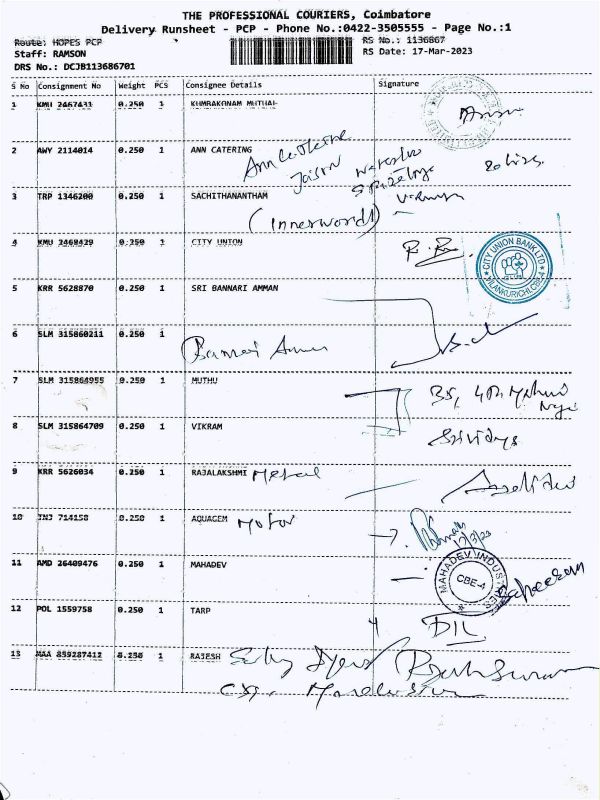 THE PROFESSIONAL COURIERS, Coimbatore
Delivery Runsheet - PCP - Phone No.:0422-3505555 - Page No.:1
Route: HOPES PCP RS No.: 1136867
Staff: RAMSON RS Date: 17-Mar-2023
DRS No.: DCJB113686701
S No Consignment No Weight PCS Consignee Details Signature
1 KMU 2467431 0.250 1 KUMBAKONAM MUTHAL
2 AWY 2114014 0.250 1 ANN CATERING
Jaison
3 TRP 1346200 0.250 1 SACHITHANANTHAM
(Innerworld)
4 KMU 2468429 0.250 1 CITY UNION
CITY UNION BANK LTD
VILANKURICHI, CBE-4
5 KRR 5628870 0.250 1 SRI BANNARI AMMAN
6 SLM 315860211 0.250 1
Bannari Amman
7 SLM 315864955 0.250 1 MUTHU
8 SLM 315864709 0.250 1 VIKRAM
Srividya
9 KRR 5626034 0.250 1 RAJALAKSHMI Metal
10 INJ 714158 0.250 1 AQUAGEM Motor
17/3/23
11 AMD 26409476 0.250 1 MAHADEV
MAHADEV INDUSTRIES
CBE-4
12 POL 1559758 0.250 1 TARP
13 MAA 859287412 0.250 1 RAJESH